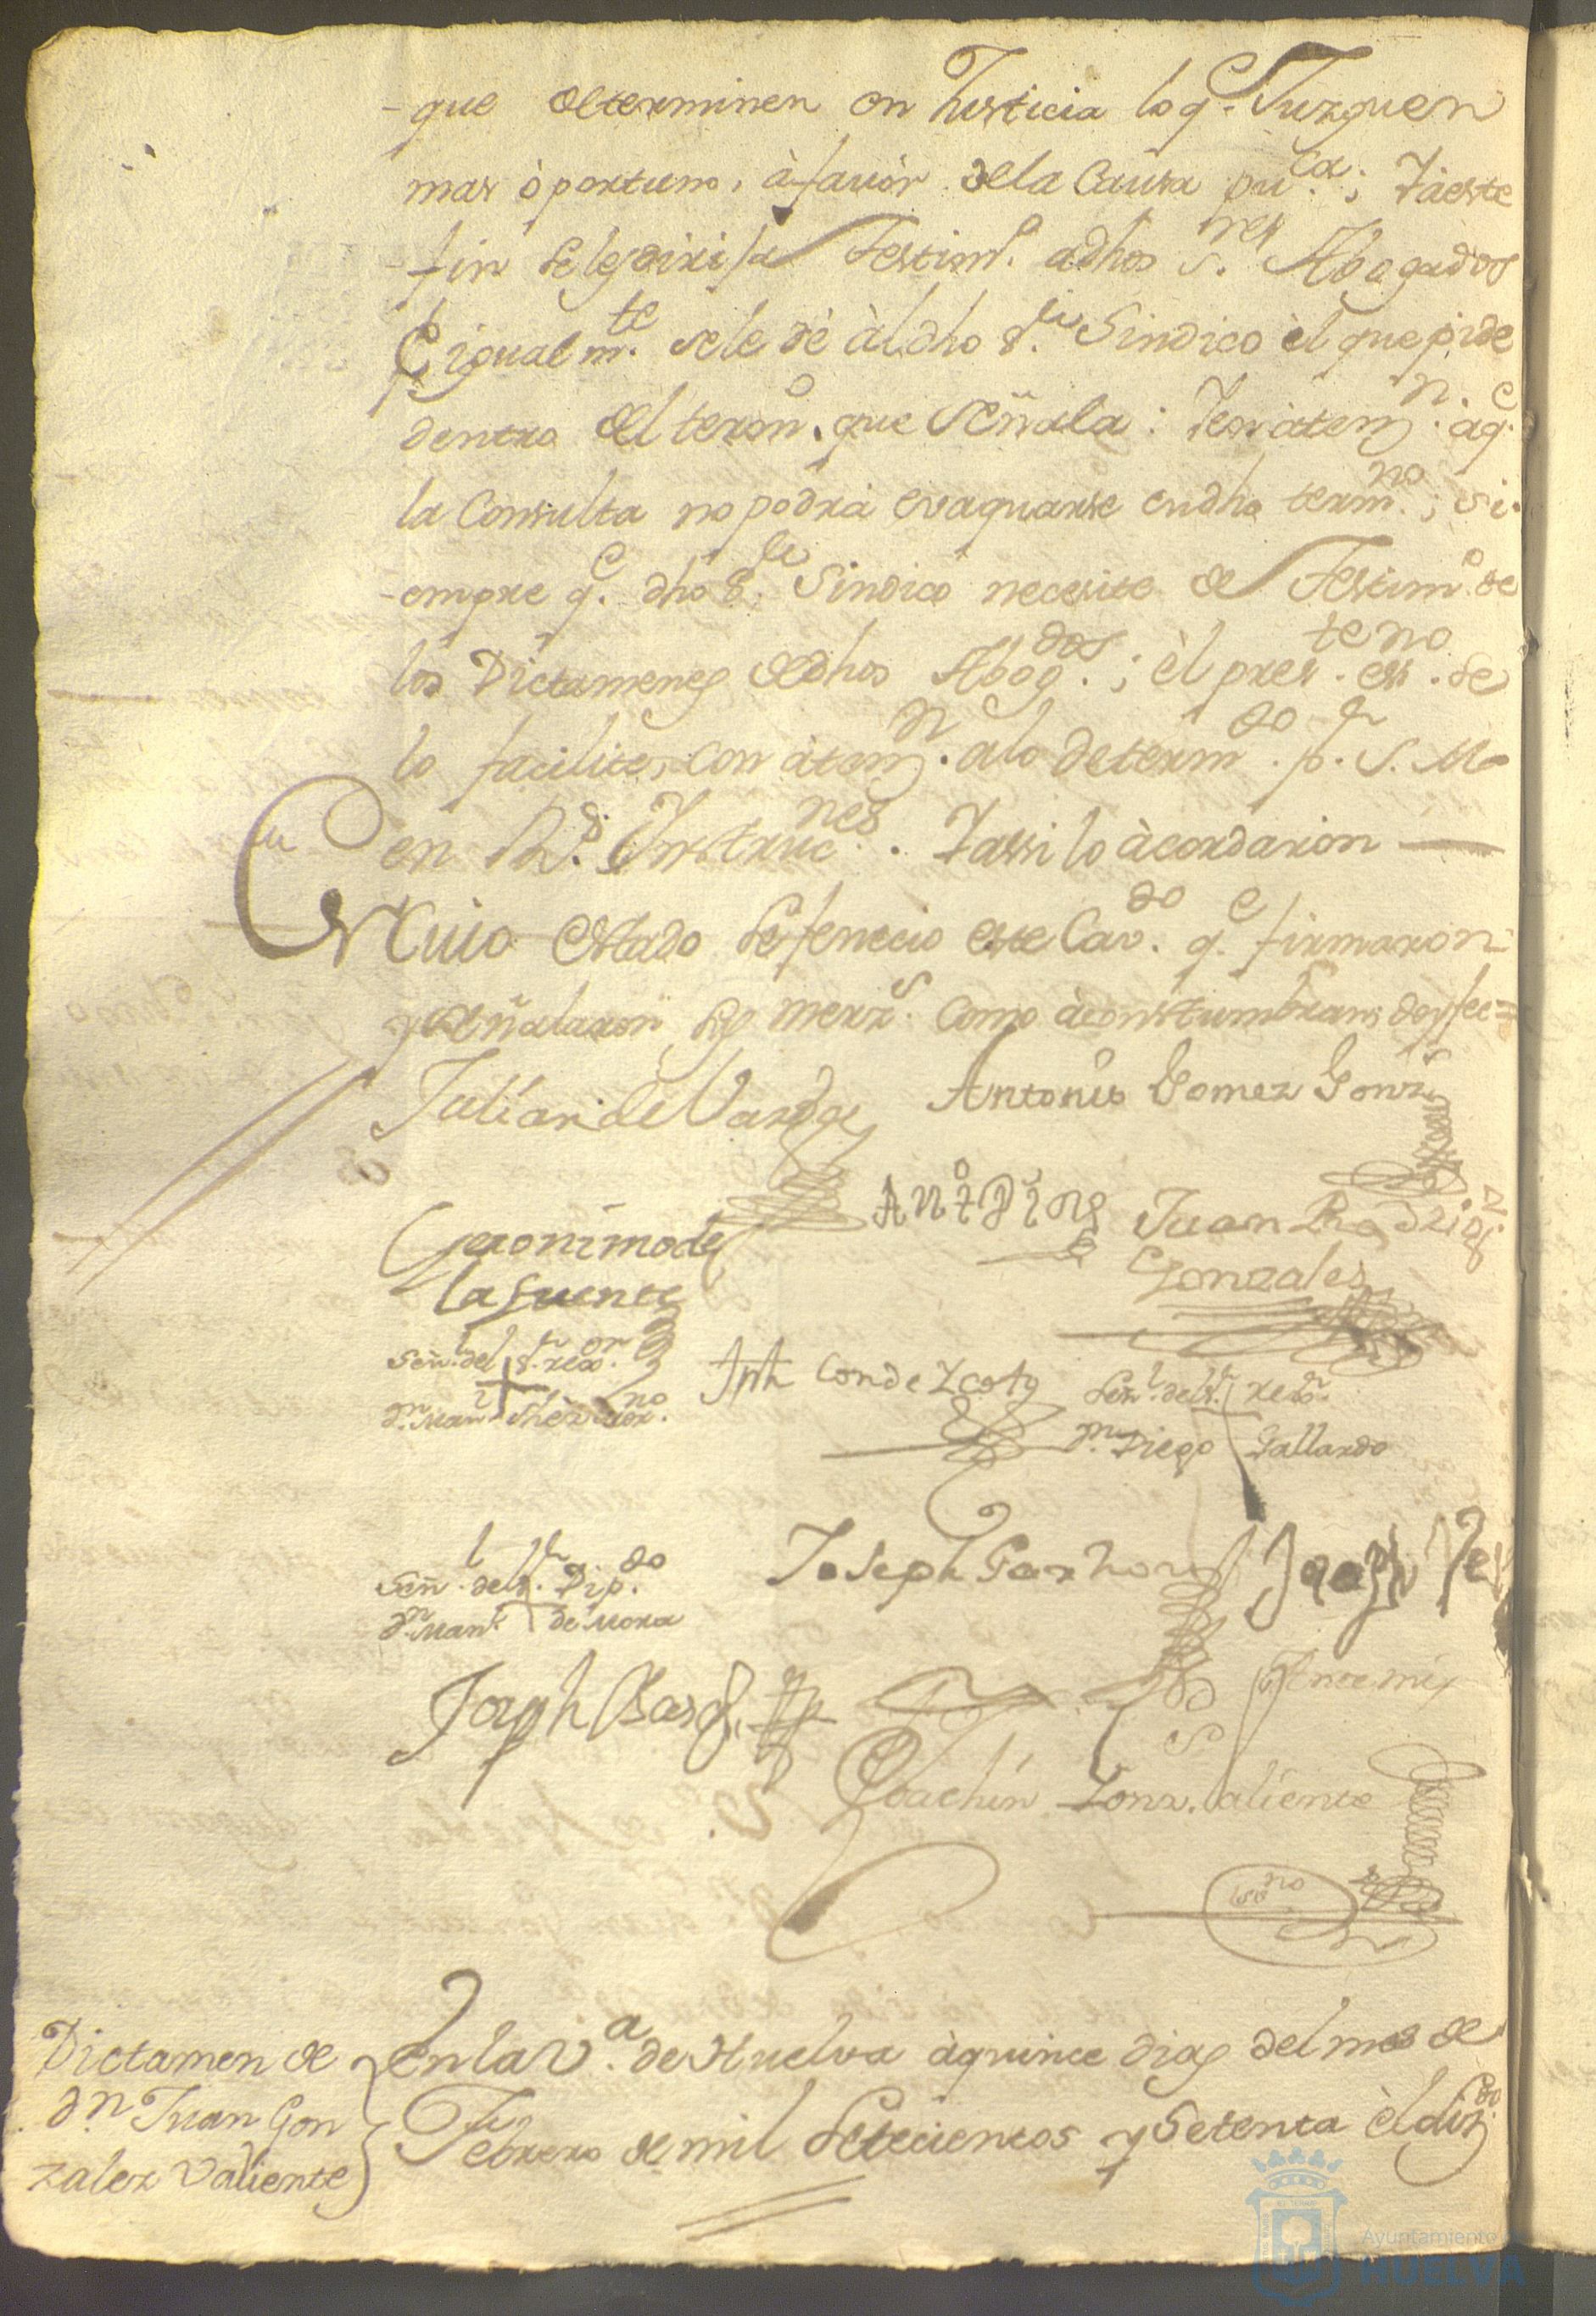 -que determinen en Justicia lo q.e Juzguen
mas òportuno, à favòr dela Causa pu.ca; Y à este
fin se les dirixa Testim.o a dhos S.res Abogados
E igualm.te sele dè àl dho S.or Sindico èl que pide
dentro del termn.o que Señala: Y en àtenz.n àq.e
la Consulta no podrà evaquarse en dho term.no; si-
-empre q.e dho S.or Sindico necesite de Testim.o de
los Dictamenes de dhos Abog.dos; èl pres.te ess.no se
lo facilite, con àtenz.n alo determ.do p.r S. M.
en R.s Instruc.nes. Y assi lo àcordaron
En Cuio estado se fenecio este Cav.do q.e firmaron
y señalaron sus merz.s como àconstumbran, doy fee=
Julian de Vardas Antonio Gomez Gonz.s
Geronimo de Ant.o Pino Juan Rodrig.z
la fuente Gonzales
Señ.l del S.r rex.or Jph Conde Zcoto Señ.l del S.r rex.or
d.n Man.l d.n Diego Gallardo
Señ.l del S.r Dip.do Joseph Garzon
d.n Man.l de Mora
Joseph Ante mi
Joachin Gonz. Valiente
ess.no
Dictamen de
d.n Juan Gon
zalez Valiente
En la V.a de Huelva à quince dias del mes de
Febrero de mil Setecientos y Setenta èl Liz.do
Ayuntamiento de
HUELVA